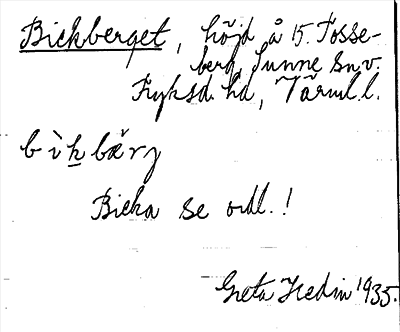 Bickberget, höjd å 15. Fosse-
berg, Sunne sn v.
Fryksd. hd, Värml. l.
b ì k bærj
Bicka se ordl.!
Greta Hedin 1935.